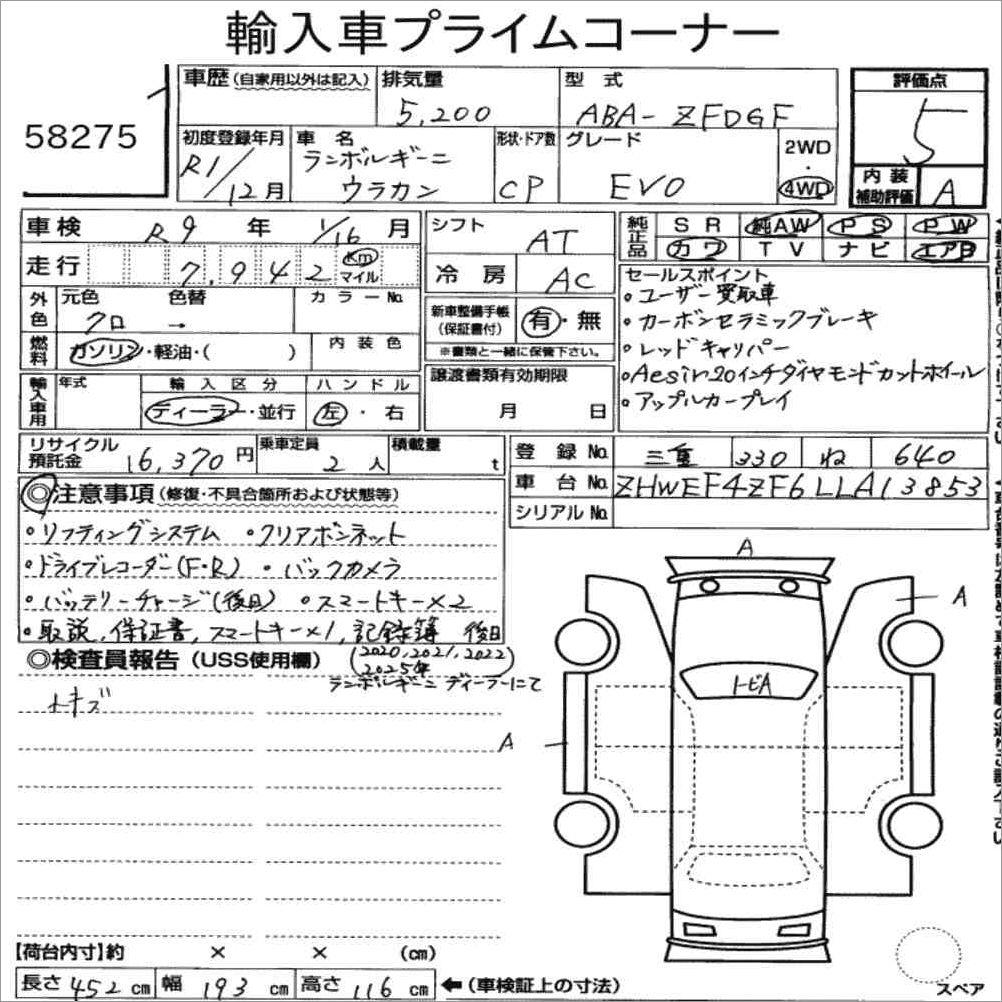 輸入車プライムコーナー
58275
車歴(自家用以外は記入) 排気量 5,200 型式 ABA-ZFDGF
評価点 5
初度登録年月 R1/12月 車名 ランボルギーニ ウラカン 形状・ドア数 CP グレード EVO 2WD・4WD
内装補助評価 A
車検 R9年 1/16月
走行 7,942 Km マイル
シフト AT
冷房 AC
純正品 SR 純AW PS PW
カワ TV ナビ エアB
外色 元色 クロ 色替 → カラーNo.
燃料 ガソリン・軽油・( ) 内装色
新車整備手帳(保証書付) 有・無
※書類と一緒に保管下さい。
セールスポイント
・ユーザー買取車
・カーボンセラミックブレーキ
・レッドキャリパー
・Aesir20インチダイヤモンドカットホイール
・アップルカープレイ
輸入車用 年式 輸入区分 ディーラー・並行 ハンドル 左・右
譲渡書類有効期限 月 日
リサイクル預託金 16,370円 乗車定員 2人 積載量 t
登録No. 三重 330 ね 640
車台No. ZHWEF4ZF6LLA13853
シリアルNo.
◎注意事項(修復・不具合箇所および状態等)
・リフティングシステム ・クリアボンネット
・ドライブレコーダー(F・R) ・バックカメラ
・バッテリーチャージ(後日) ・スマートキー×2
・取説、保証書、スマートキー×1、記録簿 後日
(2020,2021,2022
2025年)
ランボルギーニ ディーラーにて
◎検査員報告(USS使用欄)
トキズ
A
A
トビA
A
【荷台内寸】約 × × (cm)
長さ 452 cm 幅 193 cm 高さ 116 cm ←(車検証上の寸法)
スペア